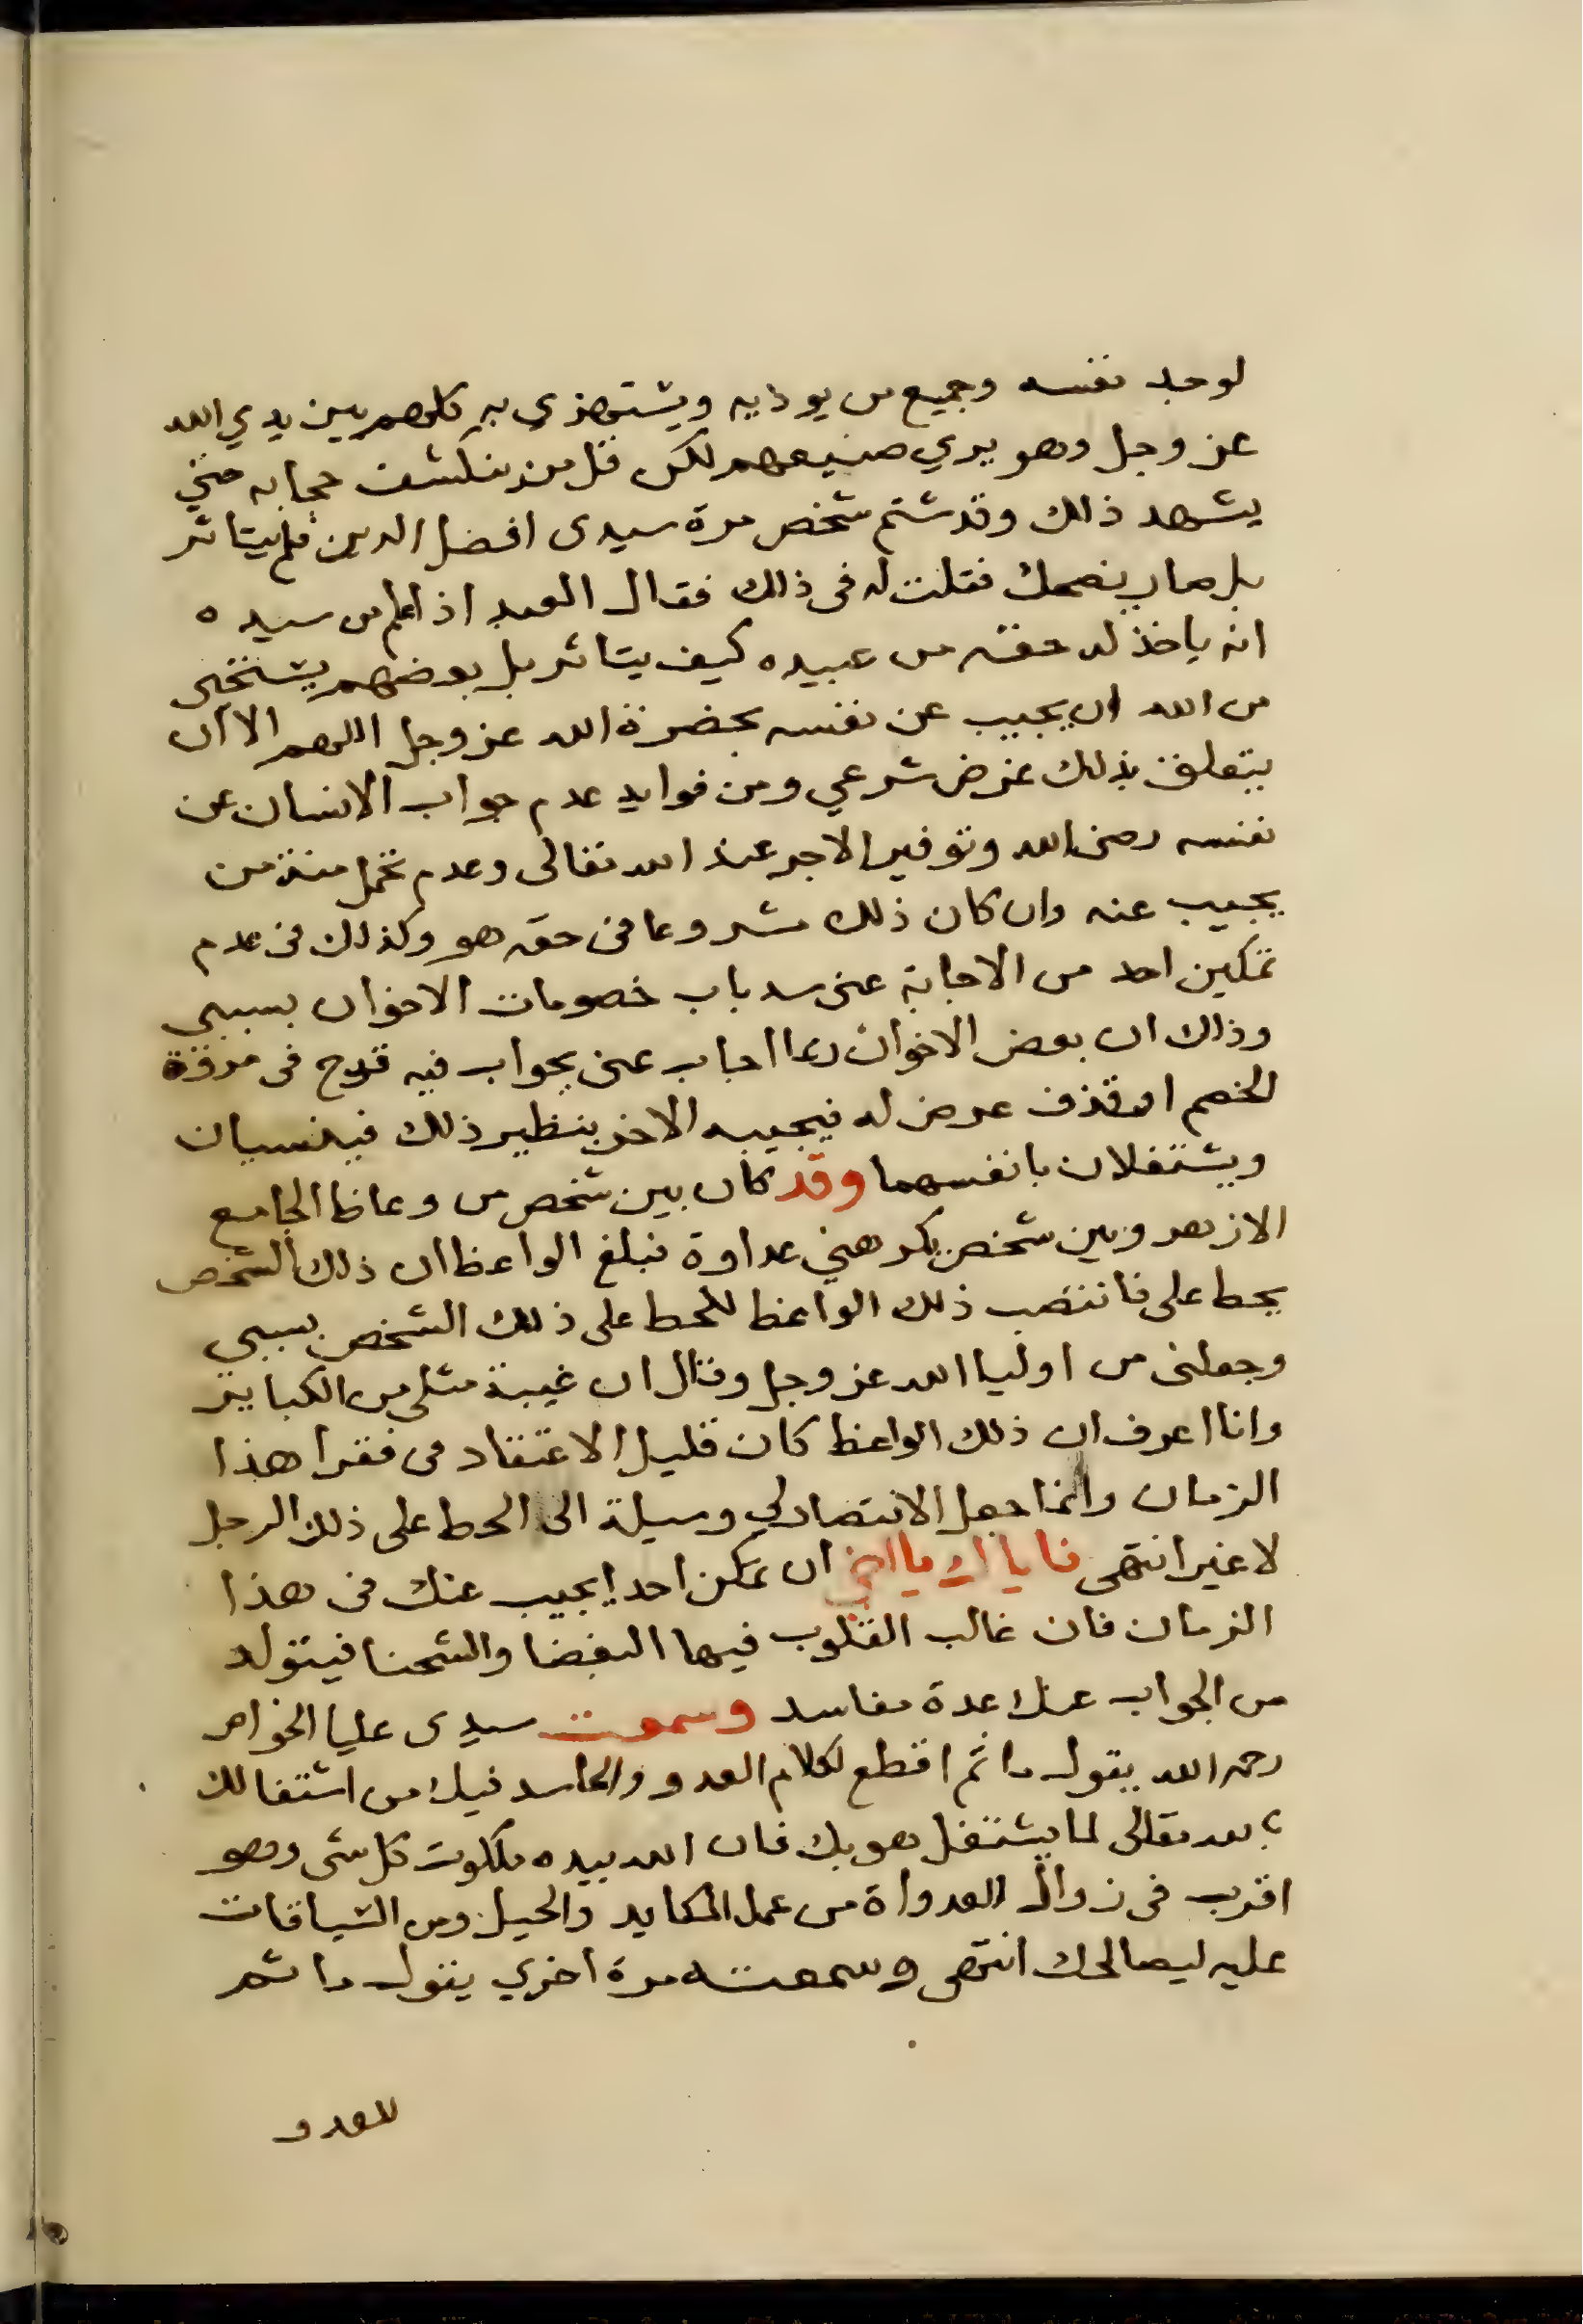 لوجد نفسه وجميع من يوذيه ويستهزي به كلهم بين يدي الله
عز وجل وهو يري صنيعهم لكن قل من ينكشف حجابه حتي
يشهد ذلك وقد شتم شخص مرة سيدى افضل الدين فلم يتاثر
بل صار يضحك فقلت له فى ذلك فقال العبد اذا علم من سيده
انه ياخذ له حقه من عبيده كيف يتاثر بل بعضهم يستحيى
من الله ان يجيب عن نفسه بحضرة الله عز وجل اللهم الا ان
يتعلق بذلك غرض شرعي ومن فوايد عدم جواب الانسان عن
نفسه رضى الله وتوفير الاجر عند الله تعالى وعدم تحمل منة من
يجيب عنه وان كان ذلك مشروعا فى حقه هو وكذلك فى عدم
تمكين احد من الاجابة عنى سد باب خصومات الاخوان بسببي
وذلك ان بعض الاخوان ربما اجاب عنى بجواب فيه قدح فى مروة
الخصم او قذف عرض له فيجيبه الاخر بنظير ذلك فينسيان
ويشتغلان بانفسهما وقد كان بين شخص من وعاظ الجامع
الازهر وبين شخص يكرهني عداوة فبلغ الواعظ ان ذلك الشخص
يحط على فانتصب ذلك الواعظ للحط على ذلك الشخص بسببي
وجعلنى من اوليا الله عز وجل وقال ان غيبة مثلى من الكباير
وانا اعرف ان ذلك الواعظ كان قليل الاعتقاد فى فقرا هذا
الزمان وانما جعل الانتصار لي وسيلة الى الحط على ذلك الرجل
لا غير انتهى فاياك يا اخي ان تمكن احدا يجيب عنك فى هذا
الزمان فان غالب القلوب فيها البغضا والشحنا فيتولد
من الجواب عنك عدة مفاسد وسمعت سيدى عليا الخواص
رحمه الله يقول ما ثم اقطع لكلام العدو والحاسد فيك من اشتغالك
بالله تعالى لما يشتغل هو بك فان الله بيده ملكوت كل شى وهو
اقرب فى زوال العدواة من عمل المكايد والحيل ومن السياقات
عليه ليصالحك انتهى وسمعته مرة اخري يقول ما ثم
للعدو